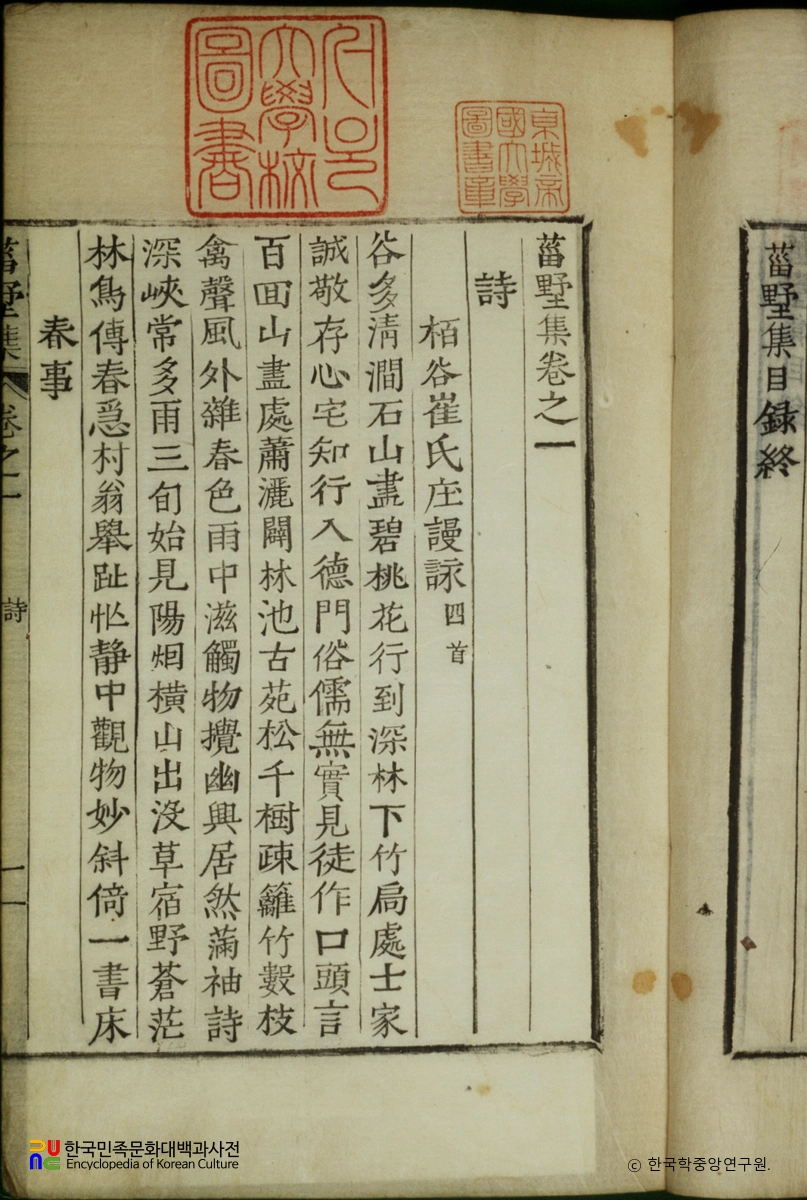 菑墅集目録終
京城帝國大學圖書章
서울大學校圖書
菑墅集卷之一
詩
栢谷崔氏庄謾詠 四首
谷多淸澗石山盡碧桃花行到深林下竹扃處士家
誠敬存心宅知行入德門俗儒無實見徒作口頭言
百囬山盡處蕭灑闢林池古苑松千樹疎籬竹數枝
禽聲風外雜春色雨中滋觸物攪幽興居然滿袖詩
深峽常多雨三旬始見陽烟橫山出沒草宿野蒼茫
林鳥傳春急村翁擧趾忙靜中觀物妙斜倚一書床
春事
菑墅集 卷之一 詩 一
한국민족문화대백과사전
Encyclopedia of Korean Culture
ⓒ 한국학중앙연구원.